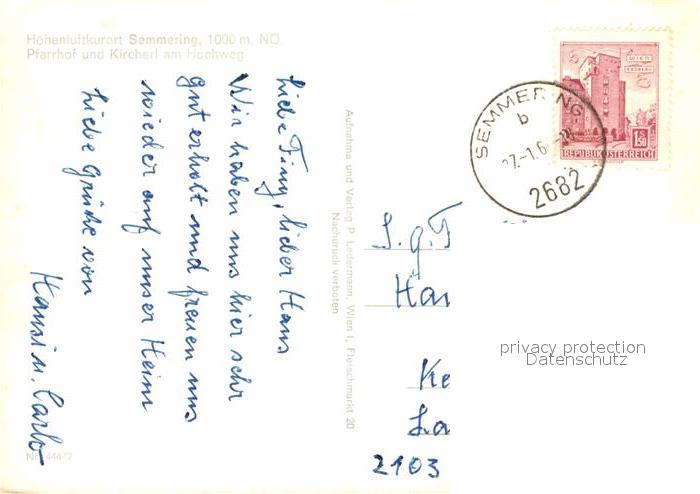 Höhenluftkurort Semmering, 1000 m, NÖ.
Pfarrhof und Kircherl am Hochweg
Liebe Finy, lieber Hans
Wir haben uns hier sehr
gut erholt und freuen uns
wieder auf unser Heim
Liebe Grüße von
Hansi u. Carlo
Nr. 444/7
Aufnahme und Verlag P. Ledermann, Wien I, Fleischmarkt 20
Nachdruck verboten
WIEN
ERDBERG
1.50
REPUBLIK ÖSTERREICH
SEMMERING
b
27.-1.6
2682
S. g. F
Han
Ke
La
2103
privacy protection
Datenschutz